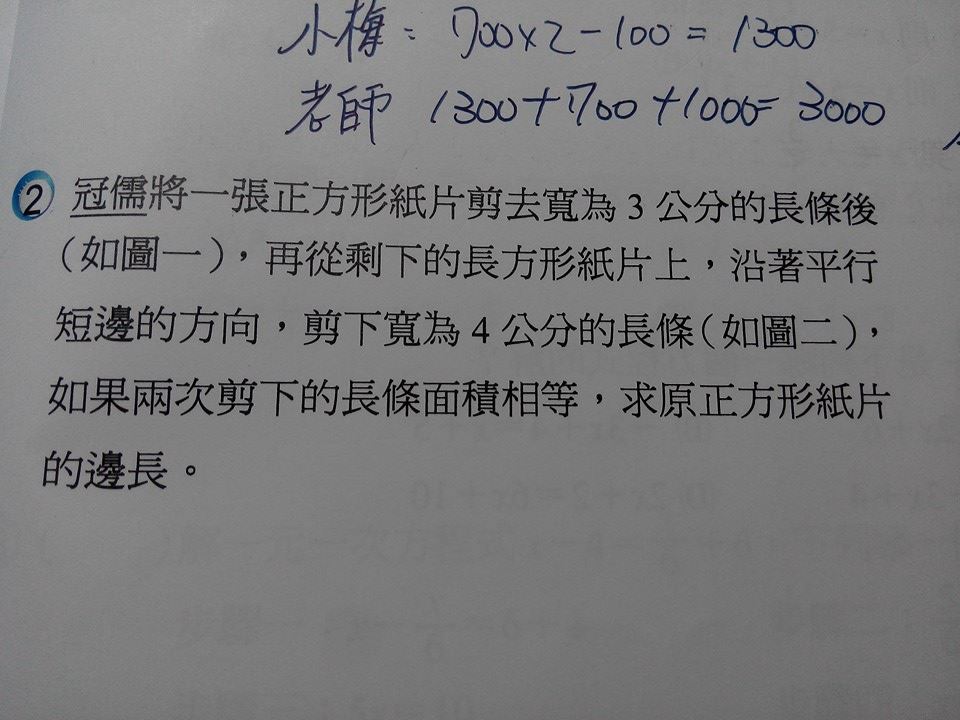 小梅：700×2－100＝1300
老師 1300＋700＋1000＝3000
2 冠儒將一張正方形紙片剪去寬為 3 公分的長條後
（如圖一），再從剩下的長方形紙片上，沿著平行
短邊的方向，剪下寬為 4 公分的長條（如圖二），
如果兩次剪下的長條面積相等，求原正方形紙片
的邊長。